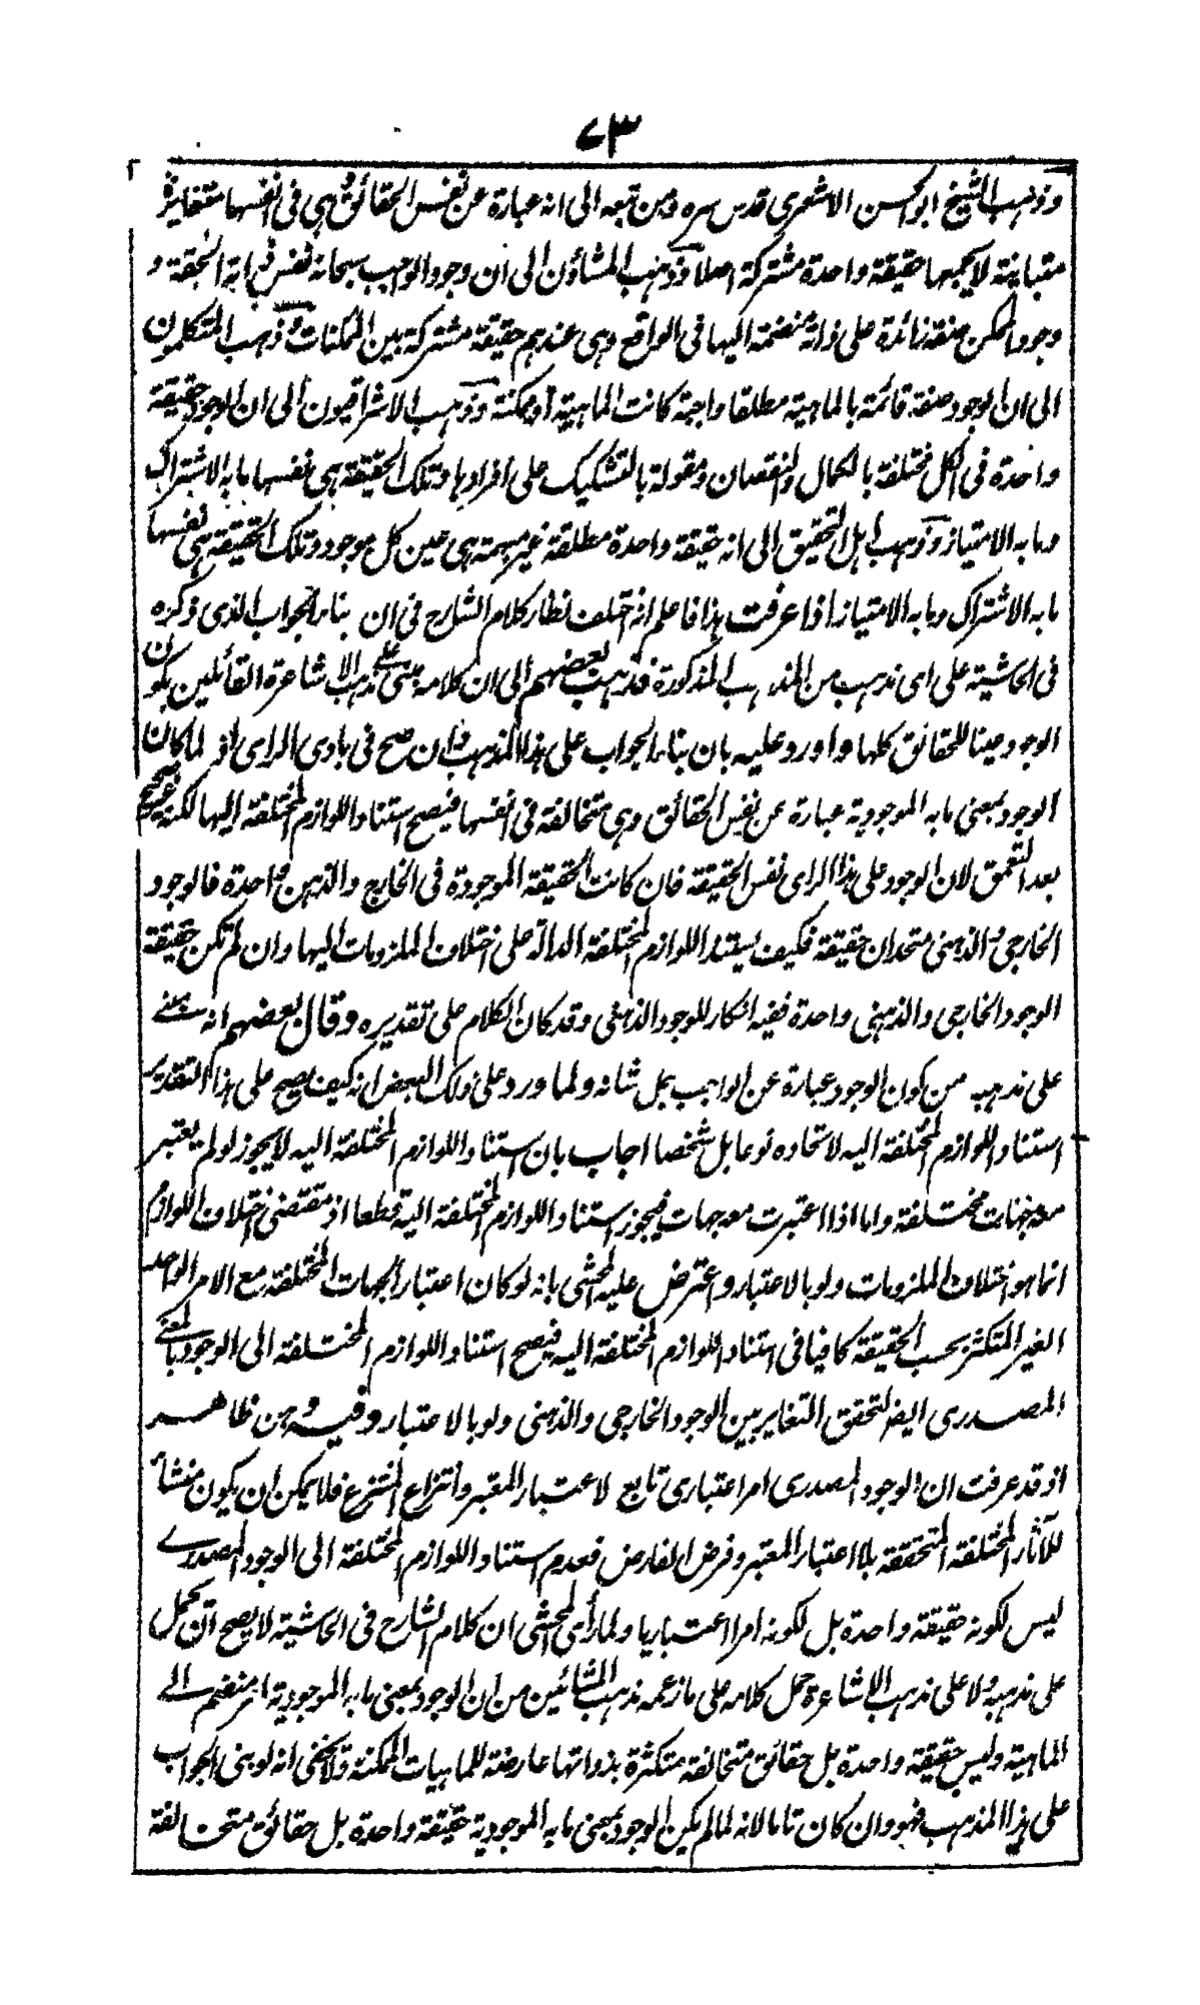 ٧٣
وذهب الشيخ ابو الحسن الاشعري قدس سره ومن تبعه الى انه عبارة عن نفس الحقائق وهي في انفسها متغايرة
متباينة لا يجمعها حقيقة واحدة مشتركة اصلا وذهب المشاؤن الى ان وجود الواجب سبحانه نفس ذاته الحقة و
وجود الممكن صفة زائدة على ذاته منضمة اليها في الواقع وهي عندهم حقيقة مشتركة بين الممكنات وذهب المتكلمون
الى ان الوجود صفة قائمة بالماهية مطلقا واجبة كانت الماهية او ممكنة وذهب الاشراقيون الى ان الوجود حقيقة
واحدة في الكل مختلفة بالكمال والنقصان ومقولة بالتشكيك على افرادها وتلك الحقيقة هي بنفسها ما به الاشتراك
وما به الامتياز وذهب اهل التحقيق الى انه حقيقة واحدة مطلقة غير مبهمة هي عين كل موجود وتلك الحقيقة هي نفسها
ما به الاشتراك وما به الامتياز اذا عرفت هذا فاعلم انه اختلف نظار كلام الشارح في ان بناء الجواب الذي ذكره
في الحاشية على اي مذهب من المذاهب المذكورة فذهب بعضهم الى ان كلامه مبني على مذهب الاشاعرة القائلين بكون
الوجود عينا للحقائق كلها واورد عليه بان بناء الجواب على هذا المذهب وان صح في بادى الراى اذ لما كان
الوجود بمعنى ما به الموجودية عبارة عن نفس الحقائق وهي متخالفة في انفسها فيصح استناد اللوازم المختلفة اليها لكنه غير صحيح
بعد التعمق لان الوجود على هذا الراى نفس الحقيقة فان كانت الحقيقة الموجودة في الخارج والذهن واحدة فالوجود
الخارجي والذهني متحدان حقيقة فكيف يستند اللوازم المختلفة الدالة على اختلاف الملزومات اليها وان لم تكن حقيقة
الوجود الخارجي والذهني واحدة ففيه انكار للوجود الذهني وقد كان الكلام على تقديره وقال بعضهم انه مبني
على مذهبه من كون الوجود عبارة عن الواجب جل شانه ولما ورد على ذلك البعض انه كيف يصح على هذا التقدير
استناد اللوازم المختلفة اليه لاتحاده نوعا بل شخصا اجاب بان استناد اللوازم المختلفة اليه لا يجوز لو لم يعتبر
معه جهات مختلفة واما اذا اعتبرت معه جهات فيجوز استناد اللوازم المختلفة اليه قطعا اذ مقتضى اختلاف اللوازم
انما هو اختلاف الملزومات ولو بالاعتبار واعترض عليه المحشى بانه لو كان اعتبار الجهات المختلفة مع الامر الواحد
الغير المتكثر بحسب الحقيقة كافيا في استناد اللوازم المختلفة اليه فيصح استناد اللوازم المختلفة الى الوجود بالمعنى
المصدري ايضا لتحقق التغاير بين الوجود الخارجي والذهني ولو بالاعتبار وفيه وهن ظاهر
اذ قد عرفت ان الوجود المصدري امر اعتباري تابع لاعتبار المعتبر وانتزاع المنتزع فلا يمكن ان يكون منشأ
للآثار المختلفة المتحققة بلا اعتبار المعتبر وفرض الفارض فعدم استناد اللوازم المختلفة الى الوجود المصدري
ليس لكونه حقيقة واحدة بل لكونه امرا اعتباريا ولما رأى المحشى ان كلام الشارح في الحاشية لا يصح ان يحمل
على مذهبه ولا على مذهب الاشاعرة حمل كلامه على ما زعمه مذهب المشائين من ان الوجود بمعنى ما به الموجودية امر منضم الى
الماهية وليس حقيقة واحدة بل حقائق متخالفة متكثرة بذواتها عارضة للماهيات الممكنة ولا يخفى انه لو بنى الجواب
على هذا المذهب فهو وان كان تاما لانه لما لم يكن الوجود بمعنى ما به الموجودية حقيقة واحدة بل حقائق متخالفة